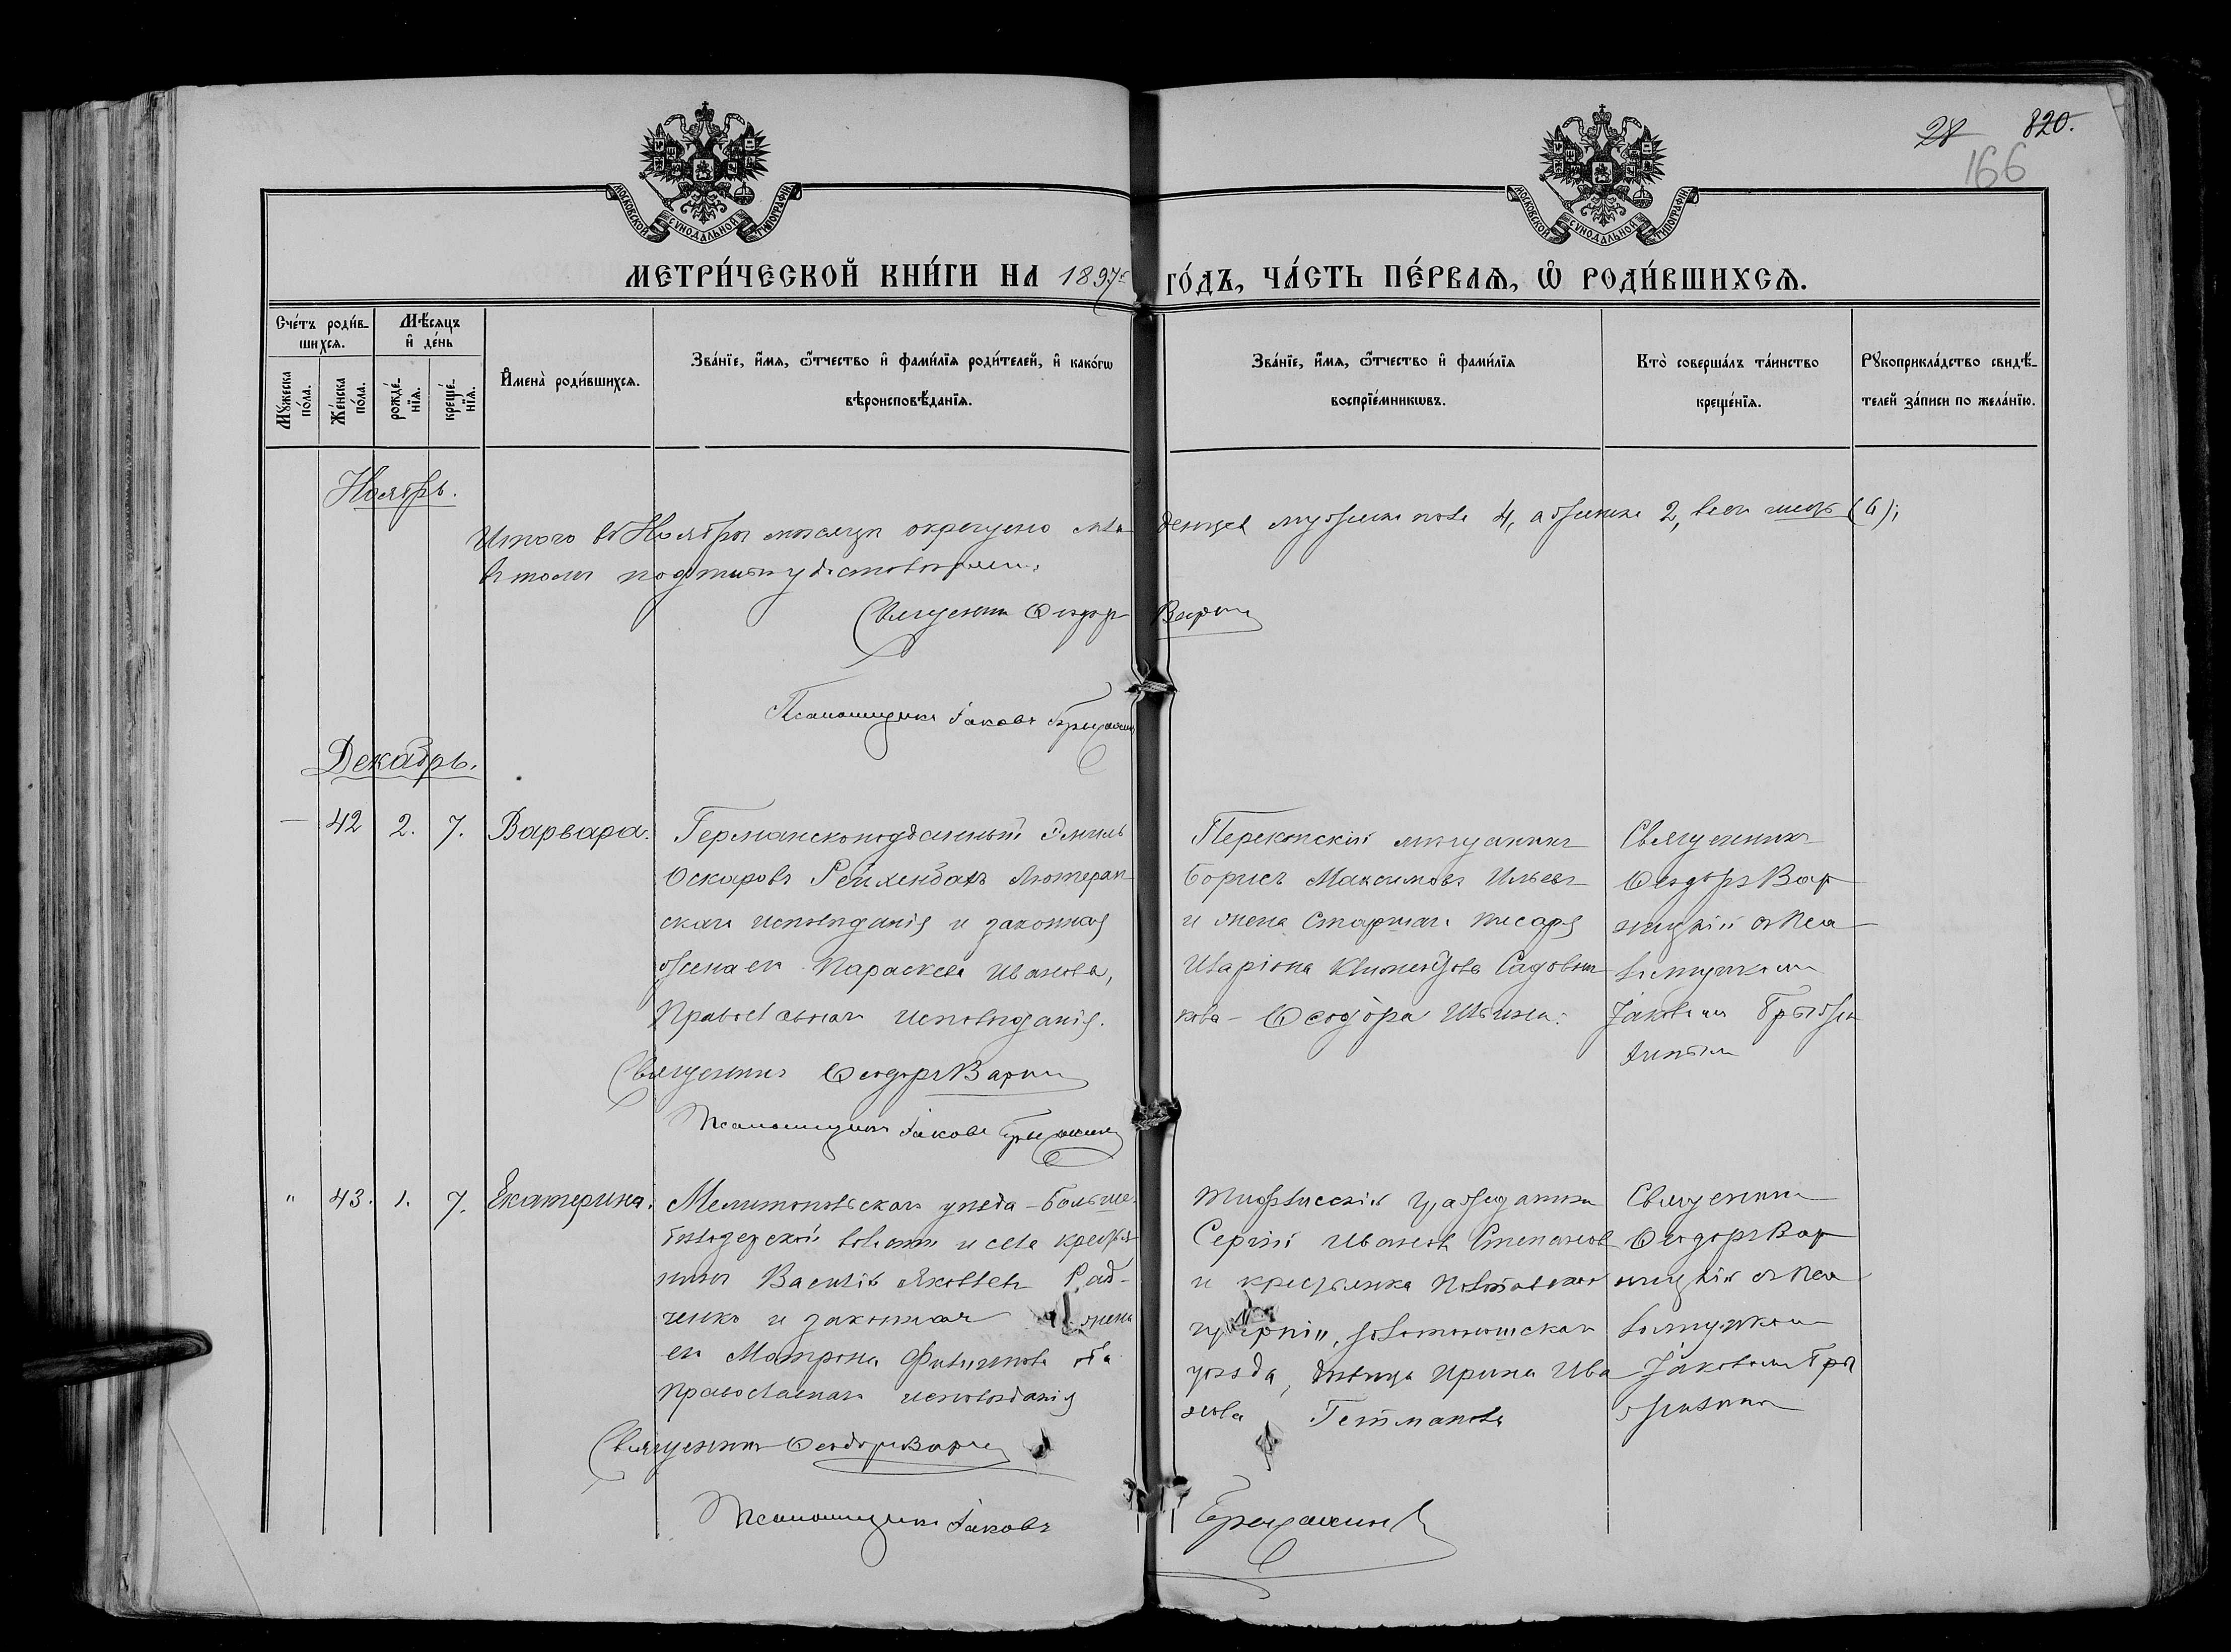 28 820.
166
МОСКОВСКОЙ СѴНОДАЛЬНОЙ ТИПОГРАФІИ
МОСКОВСКОЙ СѴНОДАЛЬНОЙ ТИПОГРАФІИ
МЕТРИ́ЧЕСКОЙ КНИ́ГИ НА 1897 ГО́ДЪ, ЧА́СТЬ ПЕ́РВАѦ, Ѽ РОДИ́ВШИХСѦ.
Сче́тъ роди́в-
шихсѧ.
Мꙋ́жеска по́ла.
Же́нска по́ла.
Мѣ́сѧцъ и҆ де́нь
рожде́-нїѧ.
креще́-нїѧ.
И҆мена̀ роди́вшихсѧ.
Зва́нїе, и҆́мѧ, ѻ҆́тчество и҆ фами́лїѧ роди́телей, и҆ како́гѡ
вѣроисповѣ́данїѧ.
Зва́нїе, и҆́мѧ, ѻ҆́тчество и҆ фами́лїѧ
воспрїе́мникѡвъ.
Кто̀ соверша́лъ та́инство
креще́нїѧ.
Рꙋкоприкла́дство свидѣ́-
телей за́писи по жела́нїю.
Ноябрь.
Итого въ Ноябрѣ мѣсяцѣ окрещено мла денцев мужеска пола 4, а женска 2, всего шесть (6);
въ томъ подписью удостовѣряемъ.
Священникъ Ѳеодоръ Варни
Псаломщикъ Іаковъ
Декабрь.
— 42 2. 7. Варвара.
Германскоподданный Эмиль
Оскаровъ Рейхенбахъ Лютеран
скаго исповѣданія и законная
жена его Параскева Иванова,
Православнаго исповѣданія.
Священникъ Ѳеодоръ Варни
Псаломщикъ Іаковъ
Перекопскій мѣщанинъ
Борисъ Максимовъ Ильевъ
и жена Старшаго писаря
Иларіона Садовни
кова — Ѳеодора Ильина.
Священникъ
Ѳеодоръ Вар
ницкій съ Пса
ломщикомъ
Іаковомъ
" 43. 1. 7. Екатерина.
Мелитопольскаго уѣзда — Больше
бѣлозерской волости и села крестья
нинъ Василій Яковлевъ Рад-
ченко и законная жена
его Матрона Филиппова оба
Православнаго исповѣданія
Священникъ Ѳеодоръ Варни
Псаломщикъ Іаковъ
Тифлисскій гражданинъ
Сергій Ивановъ Степановъ
и крестьянка Полтавской
губерніи, Золотоношскаго
уѣзда, дѣвица Ирина Ива
нова Гетманова
Священникъ
Ѳеодоръ Вар
ницкій съ Пса
ломщикомъ
Іаковомъ